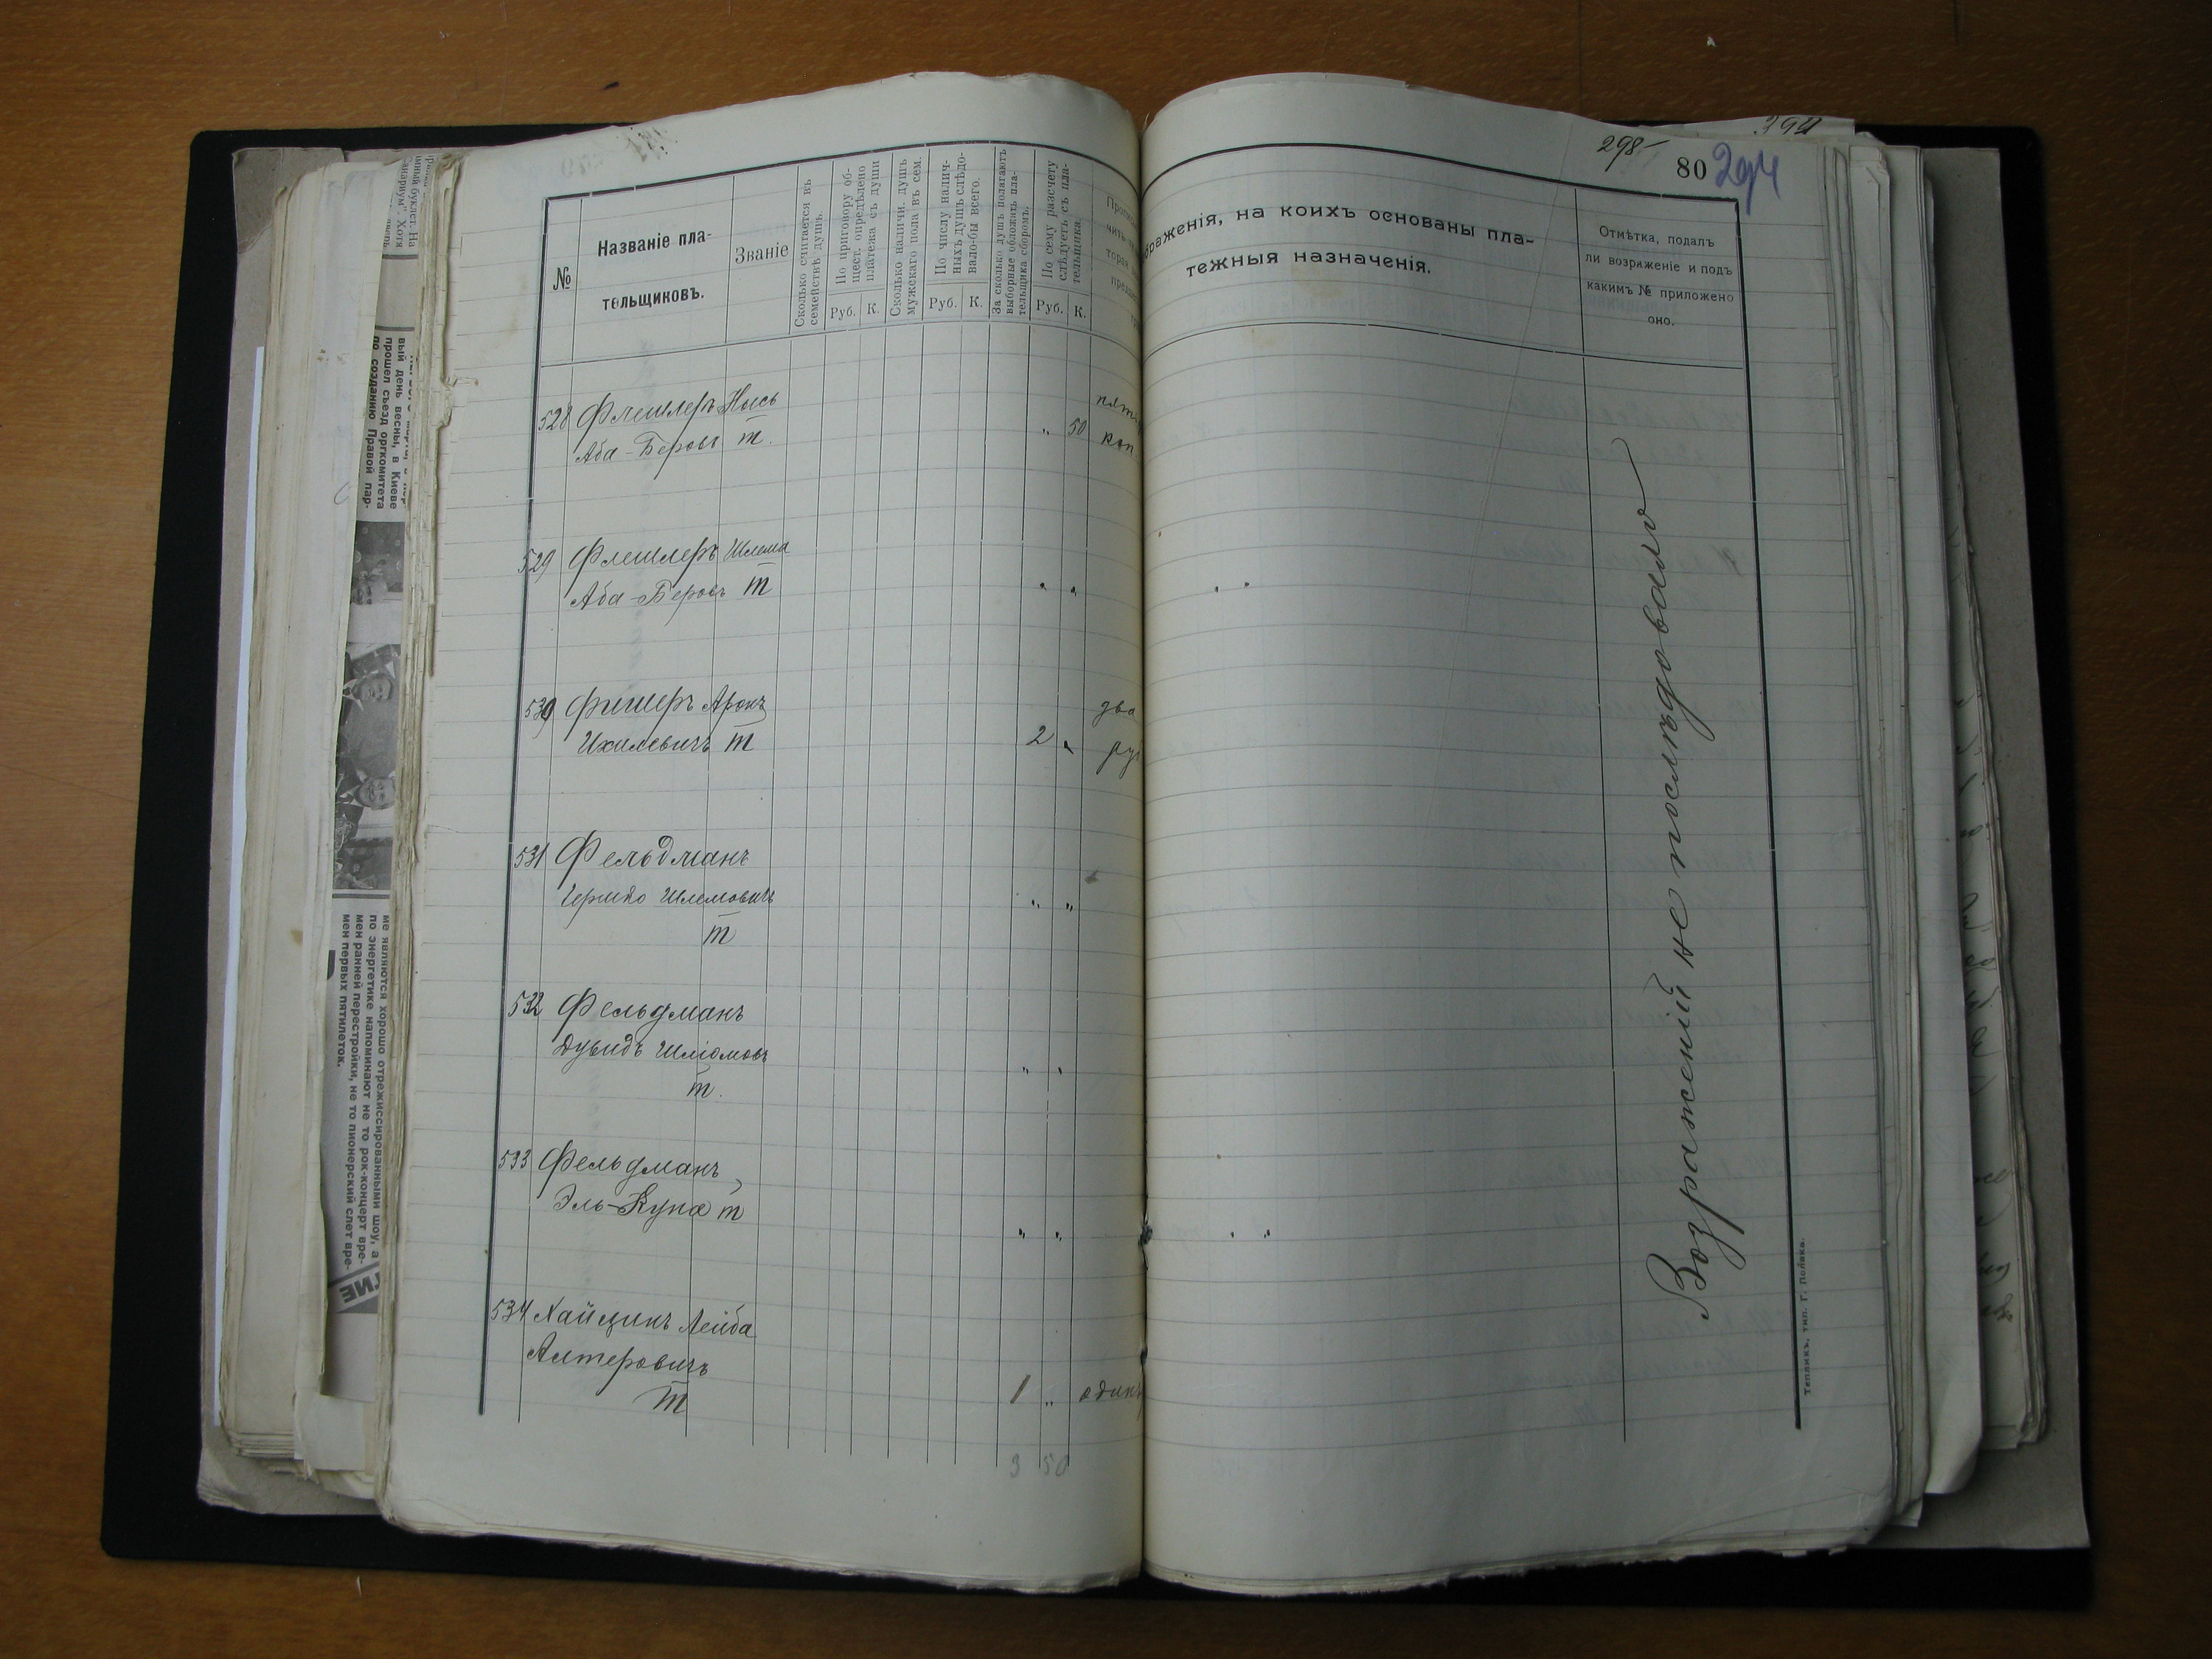 394
298
80
294
№
Названіе пла-
тельщиковъ.
Званіе
Сколько считается въ
семействѣ душъ.
По приговору об-
щест. опредѣлено
платежа съ души
Руб. К.
Сколько наличн. душъ
мужескаго пола въ сем.
По числу налич-
ныхъ душъ слѣдо-
вало-бы всего.
Руб. К.
За сколько душъ полагаютъ
выборные обложить пла-
тельщика сборомъ.
По сему разсчету
слѣдуетъ съ пла-
тельщика.
Руб. К.
браженія, на коихъ основаны пла-
тежныя назначенія.
Отмѣтка, подалъ
ли возраженіе и подъ
какимъ № приложено
оно.
528 Флешлеръ Нысь
Аба-Беровъ т. " 50
коп
529 Флешлеръ Шлема
Аба-Беровъ т " " " "
530 Фишеръ Аронъ два
Ихилевичъ т 2 " ру
531 Фельдманъ
Гершко Шлемовичъ " "
т
532 Фельдманъ
Дувидъ Шліомовъ " "
т.
533 Фельдманъ
Эль-Куна т " " " "
534 Хайцинъ Лейба
Алтеровичъ
т 1 " одинъ
3 50
Возраженій не послѣдовало
Тепликъ, тип. Г. Поляка.
вый день весны, в Киеве
прошел съезд оргкомитета
по созданию Правой пар-
ме являются хорошо отрежиссированными шоу, а
по энергетике напоминают не то рок-концерт вре-
мен ранней перестройки, не то пионерский слет вре-
мен первых пятилеток.